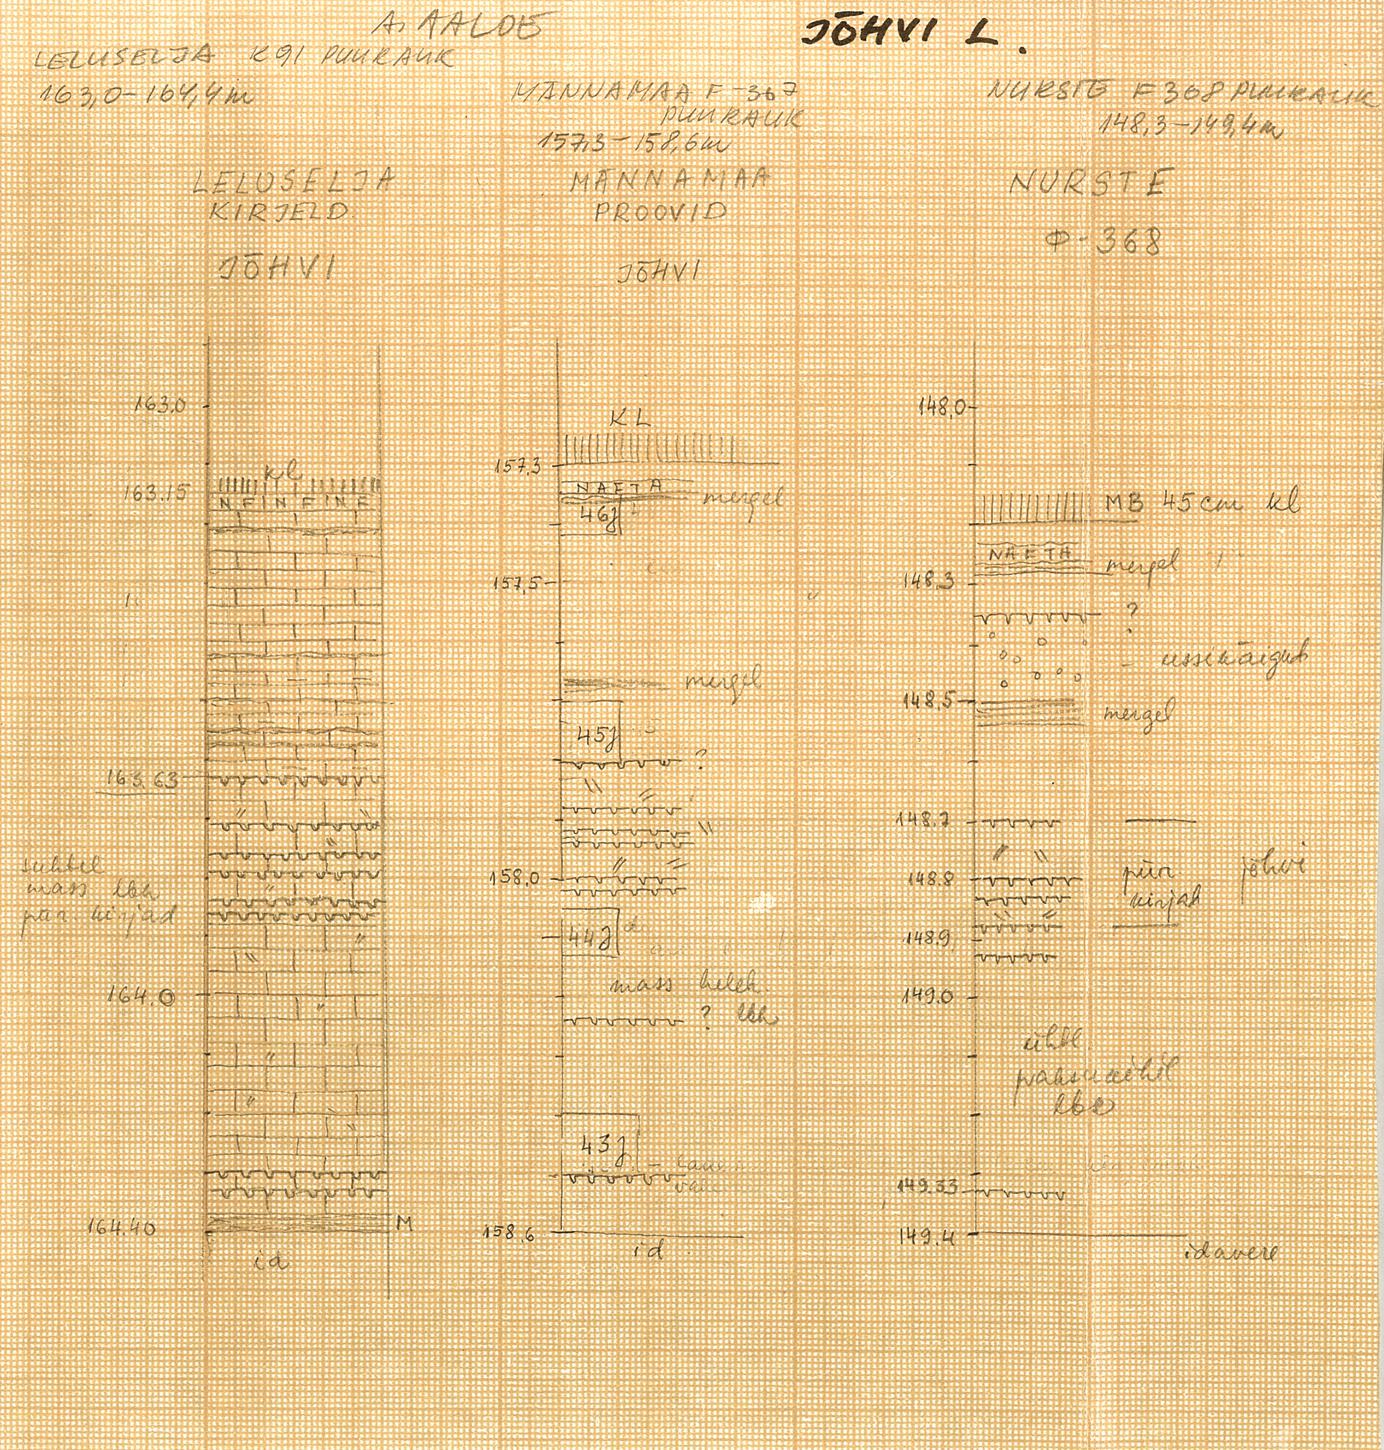 A. AALOE
JÕHVI L.
LELUSELJA K91 PUURAUK
163,0-164,4m
MÄNNAMAA F-367
PUURAUK
157,3-158,6m
NURSTE F368 PUURAUK
148,3-149,4m
LELUSELJA
KIRJELD.
JÕHVI
MÄNNAMAA
PROOVID
JÕHVI
NURSTE
Ф-368
163.0
kl
163.15
N F I N F I N F
163.63
mass lbk
kirjad
164.0
164.40
M
id
KL
157.3
NAFTA
mergel
46J
157,5
mergel
45J
?
158,0
44J
mass helek.
? lbk
43J
158.6
id
148,0
MB 45cm kl
NAFTA
mergel
148.3
?
- ussikäigud
148.5
mergel
148.7
148.8
pür.
kirjah
jõhvi
148.9
149.0
ühtl.
lbk
149.33
149.4
idavere